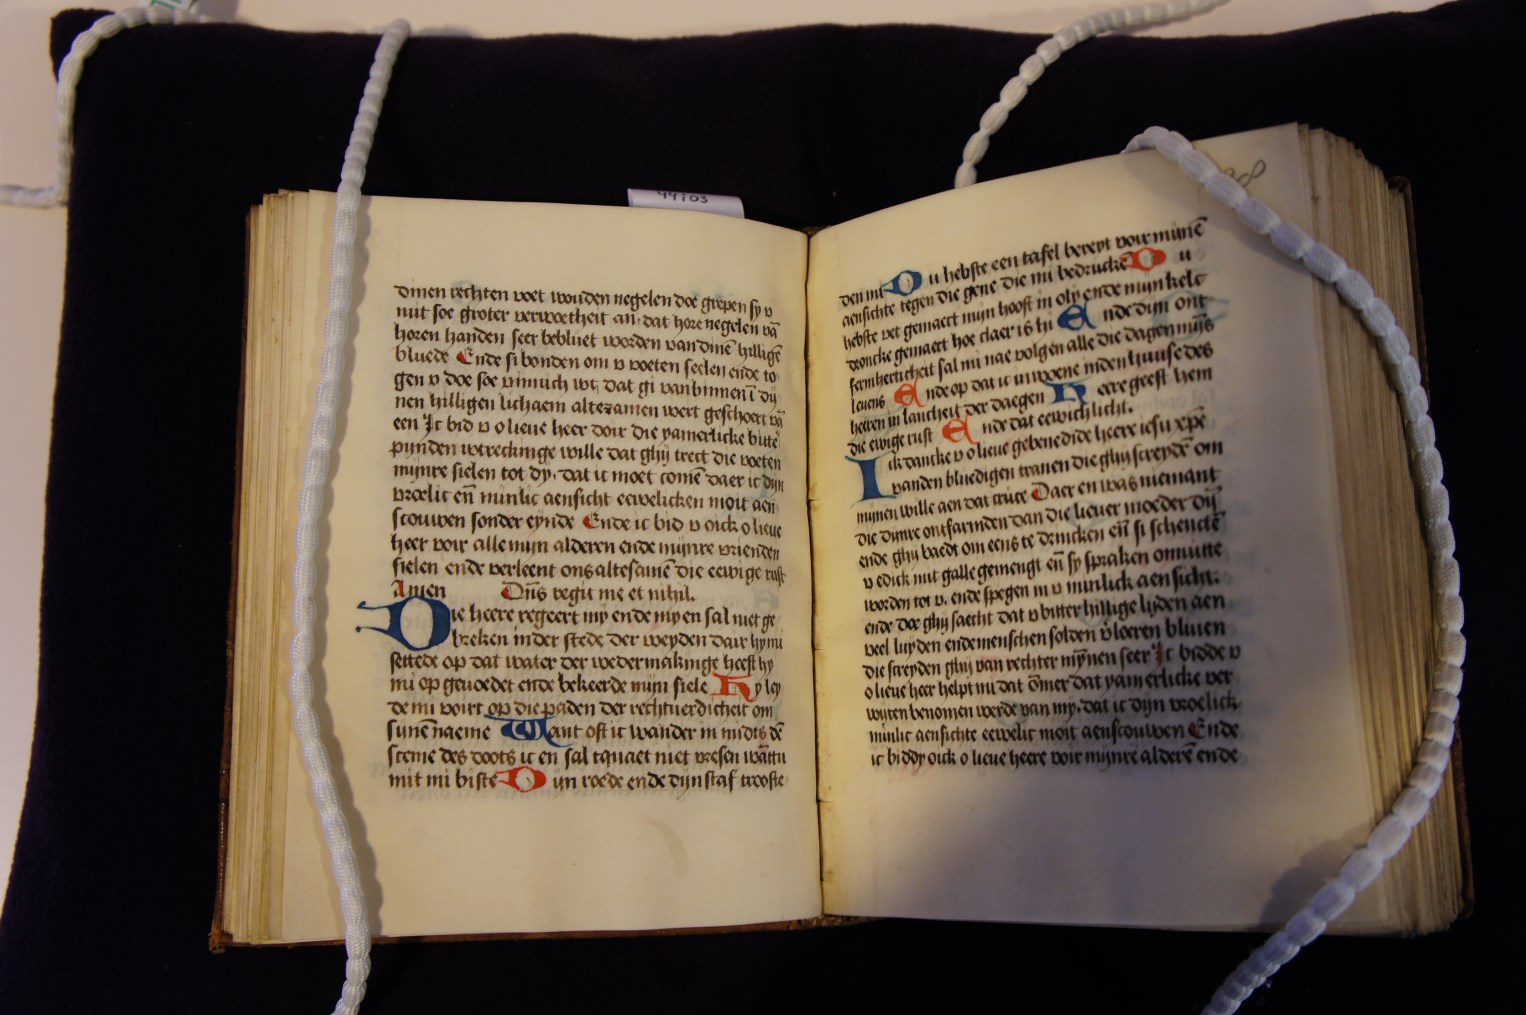 44703
dinen rechten voet wouden negelen doe grepen sy v
mit soe groter verwoetheit an, dat hore negelen vā
horen handen seer bebluet worden van dinē hilligē
bluede Ende si bonden om v voeten seelen ende to
gen v doe soe vtmuch wt, dat gi van binnen ī dij
nen hilligen lichaem altezamen wert geschoert vā
een Ic bid v o lieue heer doir die yamerlicke bitte
pijnden wtreckinge wille dat ghij trect die voeten
mijnre sielen tot dy, dat ic moet comē daer ic dijn
vroelic eñ minlic aensicht eewelicken moit aen
scouwen sonder eynde Ende ic bid v oick o lieue
heer voir alle mijn alderen ende mijnre vrienden
sielen ende verleent ons altesamē die eewige rust
Amen Dñs regit me et nihil.
Die heere regeert my ende my en sal niet ge
breken in der stede der weyden dair hy mi
settede op dat water der wedermakinge heeft hy
mi op geuoedet ende bekeerde mijn siele Hy ley
de mi voirt op die paden der rechtuerdicheit om
sinen naeme Want oft ic wander in midts dē
sceme des doots ic en sal tquaet niet vresen wāttu
mit mi biste Dijn roede ende dijn staf trooste
88
den mi Du hebste een tafel bereyt voir mijnē
aensichte tegen die gene die mi bedrucke Du
hebste vet gemaect mijn hooft in oly ende mijn kelc
droncke gemaect hoe claer is hi Ende dijn ont
fermherticheit sal mi nae volgen alle die dagen mijs
leuens Ende op dat ic inwoene inden huuse des
heeren in lancheit der daegen Heere geest hem
die ewige rust Ende dat eewich licht.
Ick dancke v o lieue gebenedide heere iesu xpē
vanden bluedigen tranen die ghij screydē om
mijnen wille aen dat cruce Daer en was niemant
die dijnre ontfarmden dan die lieuer moeder Dij
ende ghij baedt om eens te drincken eñ si schenctē
v edick mit galle gemengt eñ sy spraken onnutte
worden tot v, ende spegen in v minlick aensicht.
ende doe ghij saecht dat v bitter hillige lijden aen
veel luyden ende menschen solden v̄loeren bliuen
die screyden ghij van rechter mȳnen seer Ic bidde v
o lieue heer helpt mi dat ōmer dat yamerlicke ver
wijten benomen werde van my, dat ic dijn vroelick
minlic aensichte eewelic moit aenscouwen Ende
ic bidd v oick o lieue heere voir mijnre alderē ende